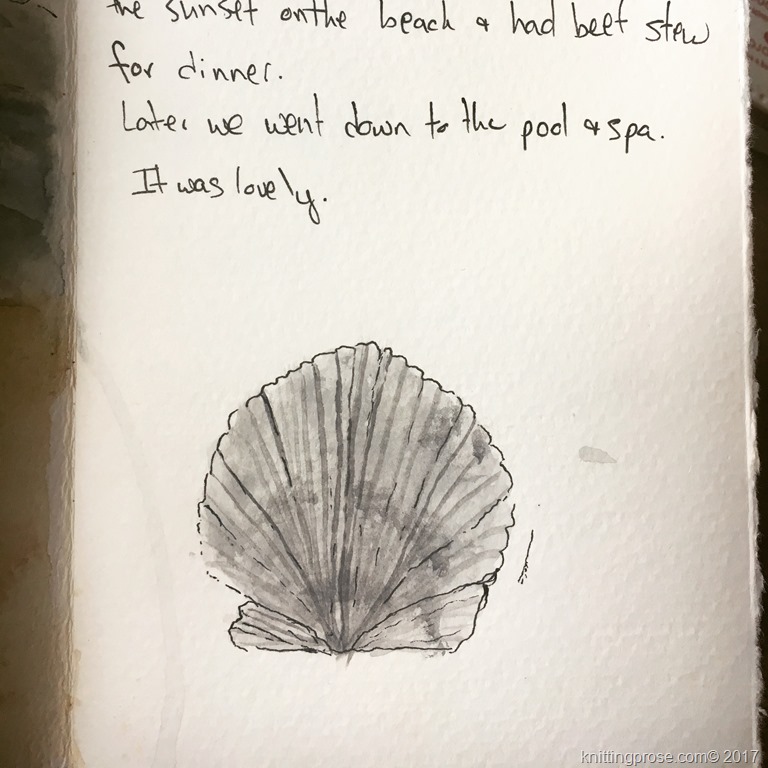 the sunset onthe beach & had beef stew
for dinner.
Later we went down to the pool & spa.
It was lovely.
knittingprose.com© 2017